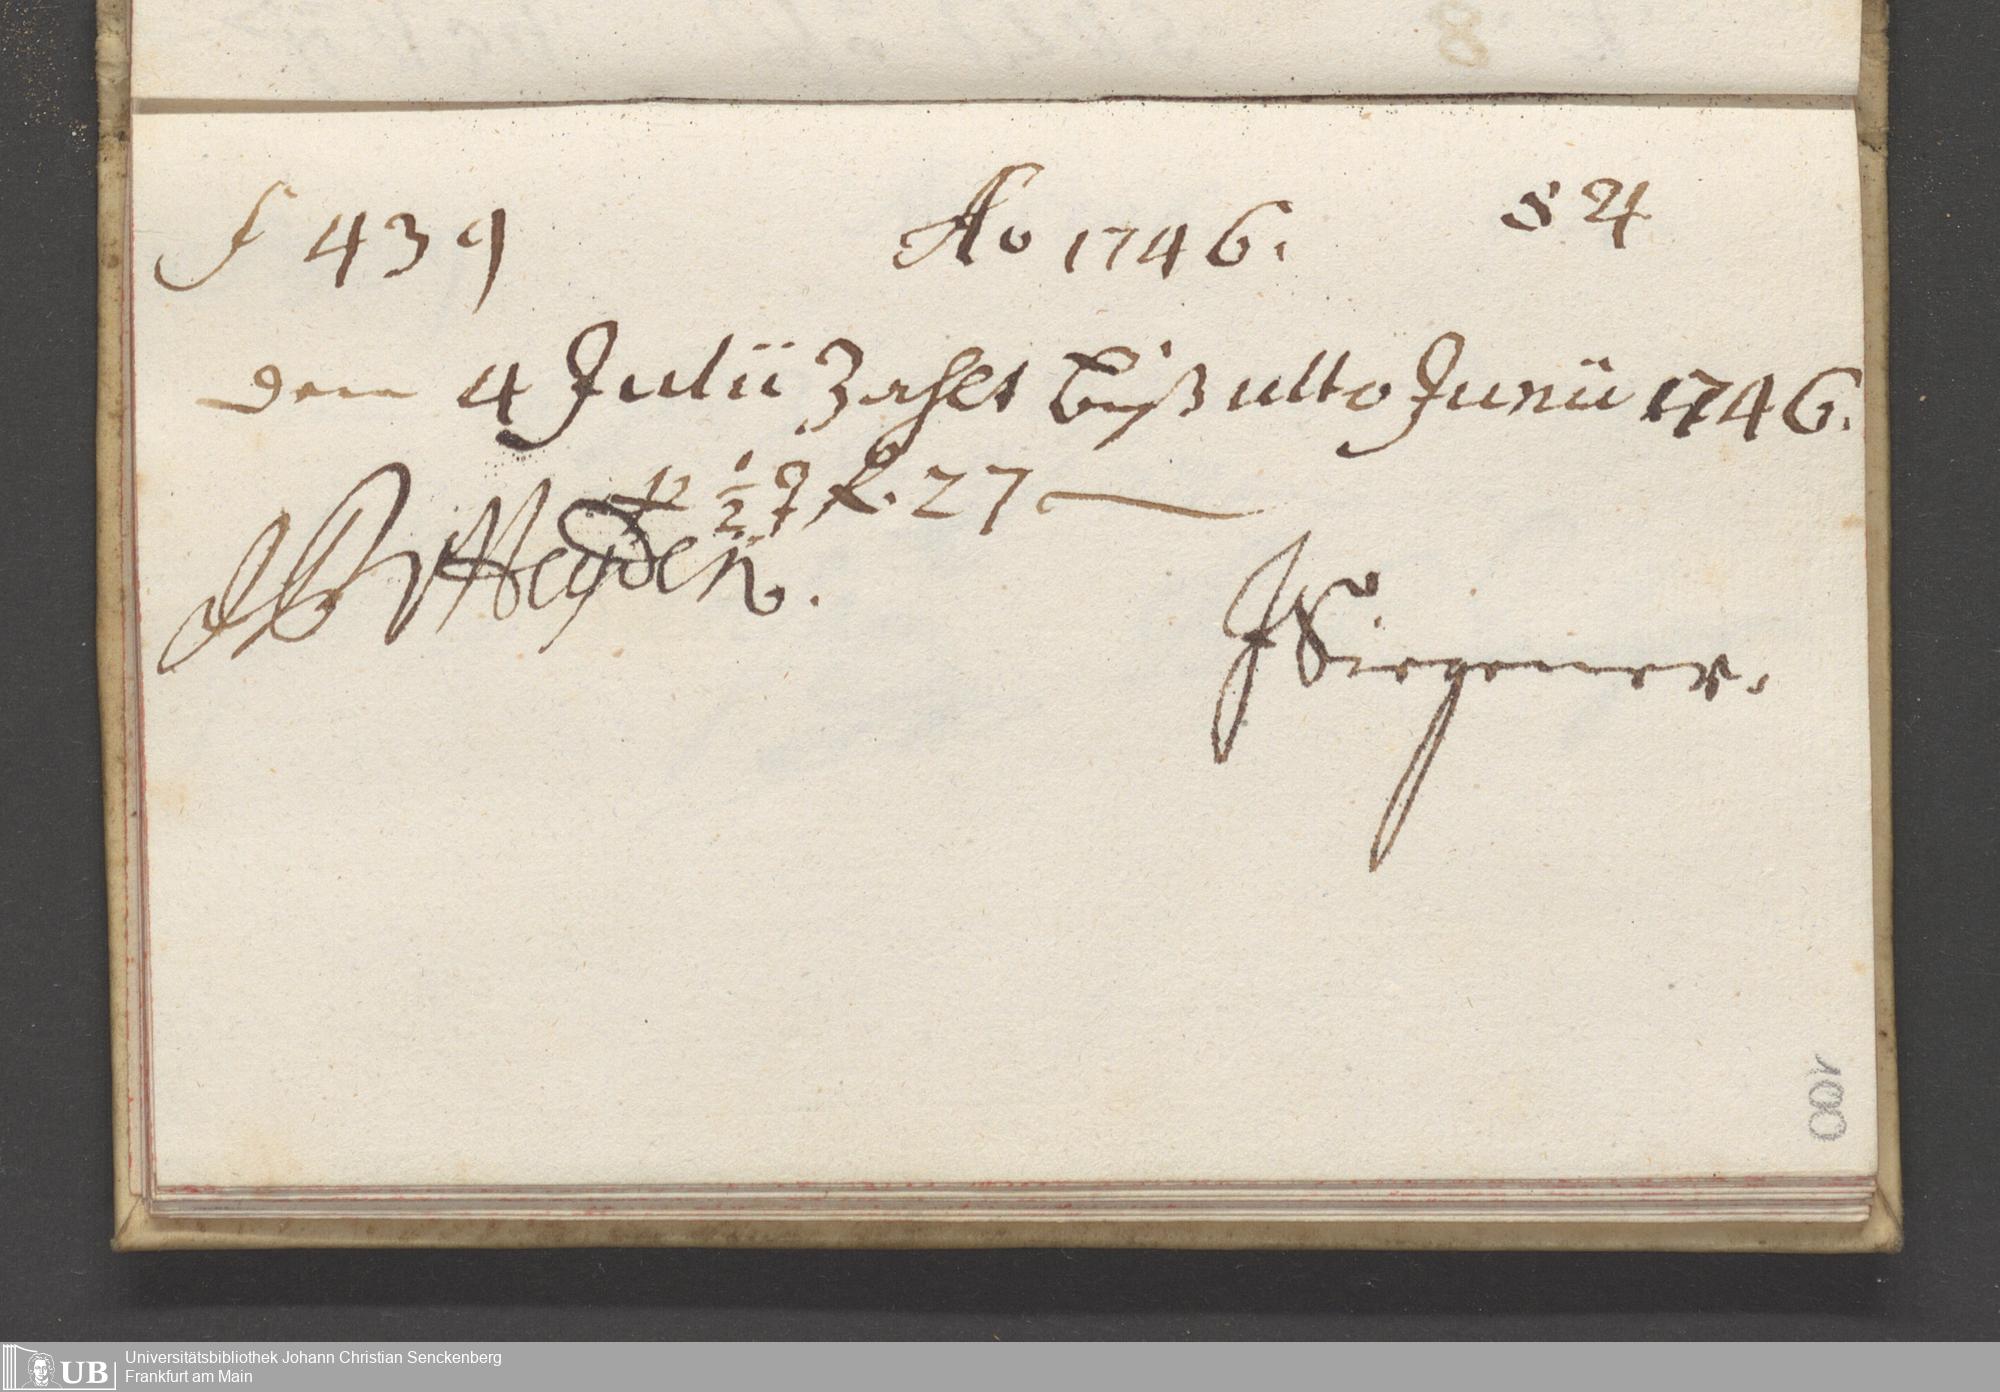 f 439 Ao 1746. 84
den 4 Julii Zahlt biß ulto Junii 1746.
12 1/2 f. 27
Heyden.
100
UB Universitätsbibliothek Johann Christian Senckenberg
Frankfurt am Main